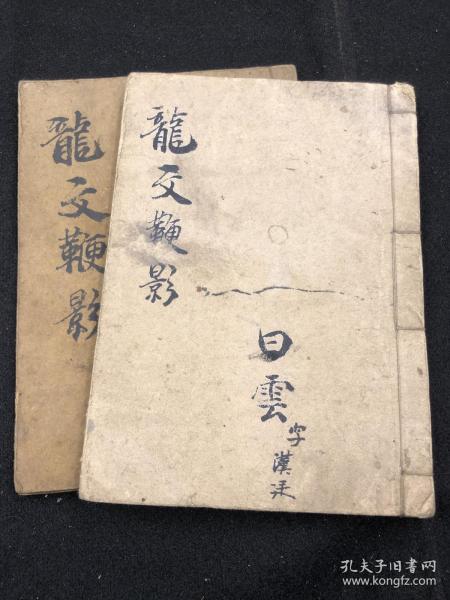 龍文鞭影
龍文鞭影
白雲
字漢
孔夫子旧书网
www.kongfz.com